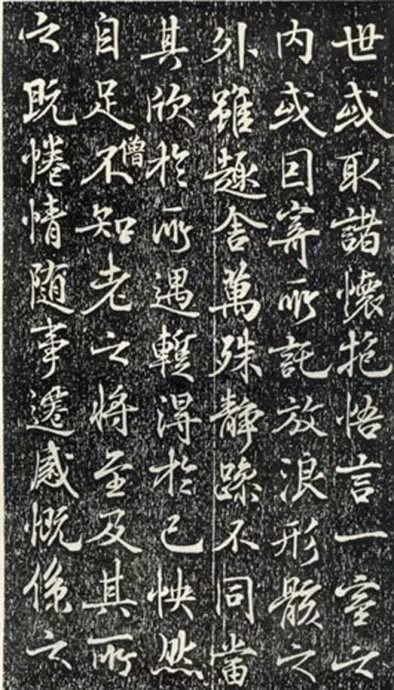 世或取諸懷抱悟言一室之
内或因寄所託放浪形骸之
外雖趣舍萬殊靜躁不同當
其欣於所遇蹔得於己怏然
僧
自足不知老之將至及其所
之既惓情随事遷感慨係之